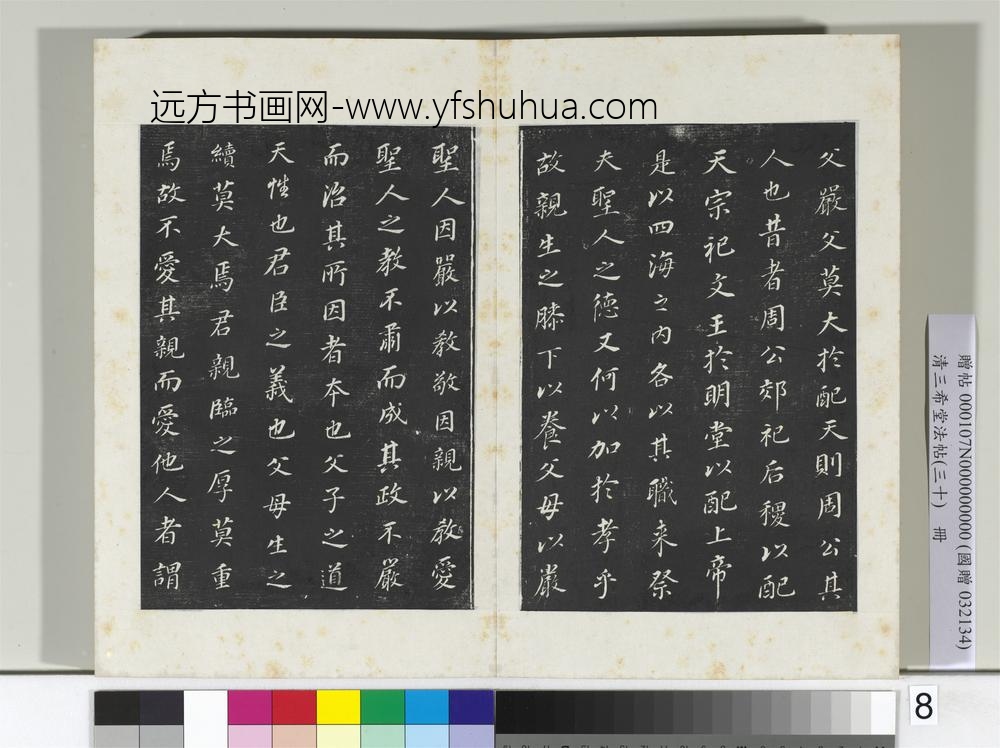 远方书画网-www.yfshuhua.com
父嚴父莫大於配天則周公其
人也昔者周公郊祀后稷以配
天宗祀文王於明堂以配上帝
是以四海之内各以其職来祭
夫聖人之德又何以加於孝乎
故親生之膝下以養父母以嚴
聖人因嚴以教敬因親以教愛
聖人之教不肅而成其政不嚴
而治其所因者本也父子之道
天性也君臣之義也父母生之
續莫大焉君親臨之厚莫重
焉故不愛其親而愛他人者謂
贈帖 000107N000000000 (國贈 032134)
清三希堂法帖(三十) 冊
8